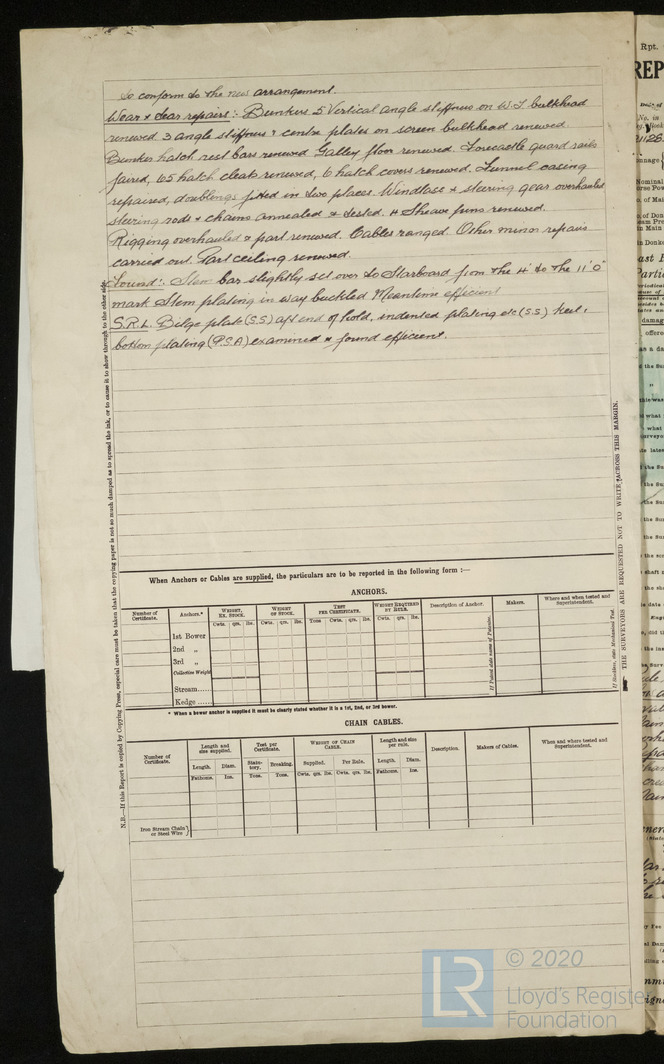 to conform to the new arrangement.
Wear & tear repairs: Bunkers 5 Vertical angle stiffners on W.T. bulkhead
renewed 3 angle stiffners & centre plates on screen bulkhead renewed
Bunker hatch rest bars renewed Galley floor renewed. Forecastle guard rails
faired, 65 hatch cleats renewed, 6 hatch covers renewed. Funnel casing
repaired, doublings fitted in two places. Windlass & steering gear overhauled
steering rods & chains annealed & tested. 4 Sheave pins renewed.
Rigging overhauled & part renewed. Cables ranged. Other minor repairs
carried out. Part ceiling renewed.
Found: Stem bar slightly set over to Starboard from the 4' to the 11'0"
mark Stem plating in way buckled Meantime efficient
S.R.L. Bilge plate (S.S) aft end of hold, indented plating etc (S.S) keel,
bottom plating (P.S.A) examined & found efficient.
N.B.—If this Report is copied by Copying Press, especial care must be taken that the copying paper is not so much damped as to spread the ink, or to cause it to show through to the other side.
THE SURVEYORS ARE REQUESTED NOT TO WRITE ACROSS THIS MARGIN.
When Anchors or Cables are supplied, the particulars are to be reported in the following form :—
ANCHORS.
Number of Certificate. Anchors.* WEIGHT, EX. STOCK. WEIGHT OF STOCK. TEST PER CERTIFICATE. WEIGHT REQUIRED BY RULE. Description of Anchor. Makers. Where and when tested and Superintendent.
Cwts. qrs. lbs. Cwts. qrs. lbs. Tons Cwts. qrs. lbs. Cwts. qrs. lbs.
1st Bower
2nd „
3rd „
Collective Weight
Stream
Kedge
If Patent state name of Patentee.
* When a bower anchor is supplied it must be clearly stated whether it is a 1st, 2nd, or 3rd bower.
CHAIN CABLES.
Number of Certificate. Length and size supplied. Test per Certificate. WEIGHT OF CHAIN CABLE. Length and size per rule. Description. Makers of Cables. When and where tested and Superintendent.
Length. Diam. Statutory. Breaking. Supplied. Per Rule. Length. Diam.
Fathoms. Ins. Tons. Tons. Cwts. qrs. lbs. Cwts. qrs. lbs. Fathoms. Ins.
Iron Stream Chain or Steel Wire
LR
© 2020
Lloyd's Register
Foundation
Rpt.
REP